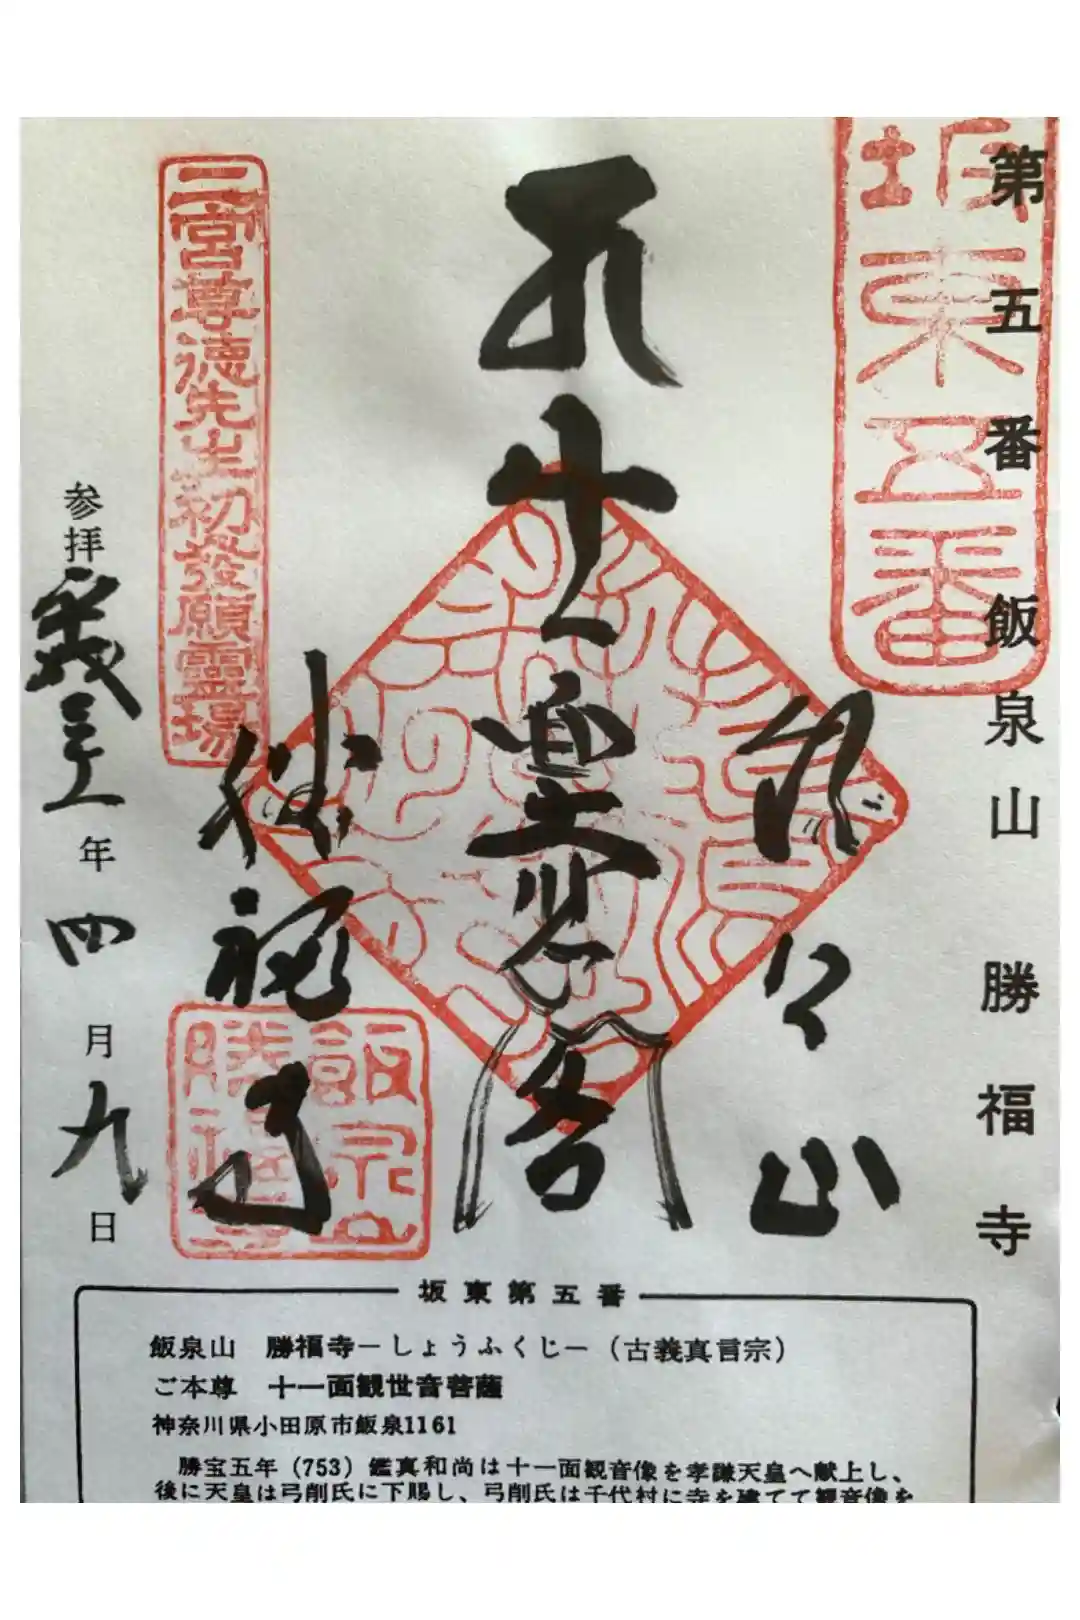 第五番 飯泉山 勝福寺
坂東五番
飯泉山
二宮尊徳先生初發願霊場
勝福寺
参拝平成三十一年四月九日
坂東第五番
飯泉山 勝福寺－しょうふくじ－（古義真言宗）
ご本尊 十一面観世音菩薩
神奈川県小田原市飯泉1161
勝宝五年（753）鑑真和尚は十一面観音像を孝謙天皇へ献上し、
後に天皇は弓削氏に下賜し、弓削氏は千代村に寺を建てて観音像を